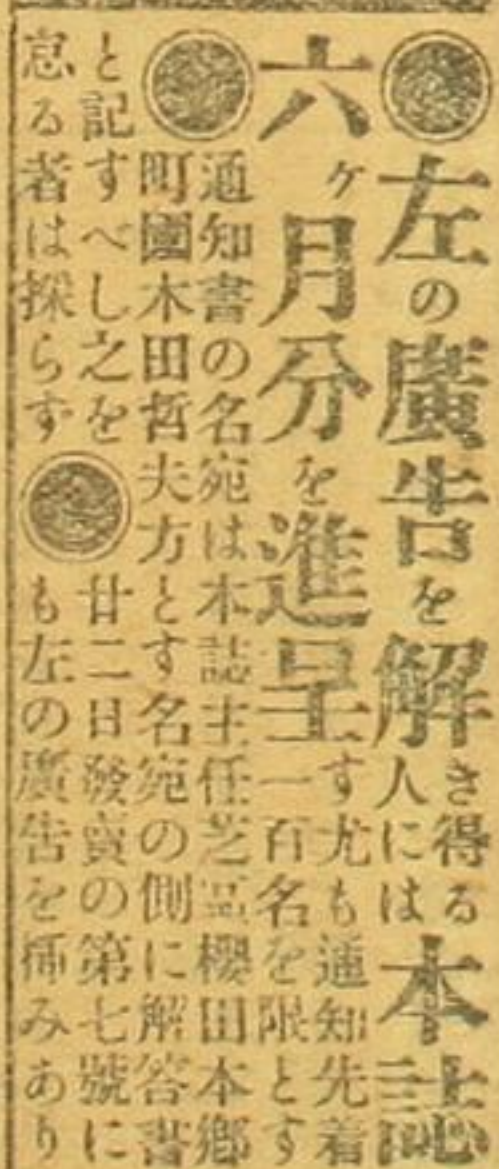 左の廣告を解き得る人には本誌
六ヶ月分を進呈す尤も通知先着
一百名を限とす
通知書の名宛は本誌主任芝區櫻田本鄕
町國木田哲夫方とす名宛の側に解答書
と記すべし之を
怠る者は採らず
廿二日發賣の第七號に
も左の廣告を揷みあり